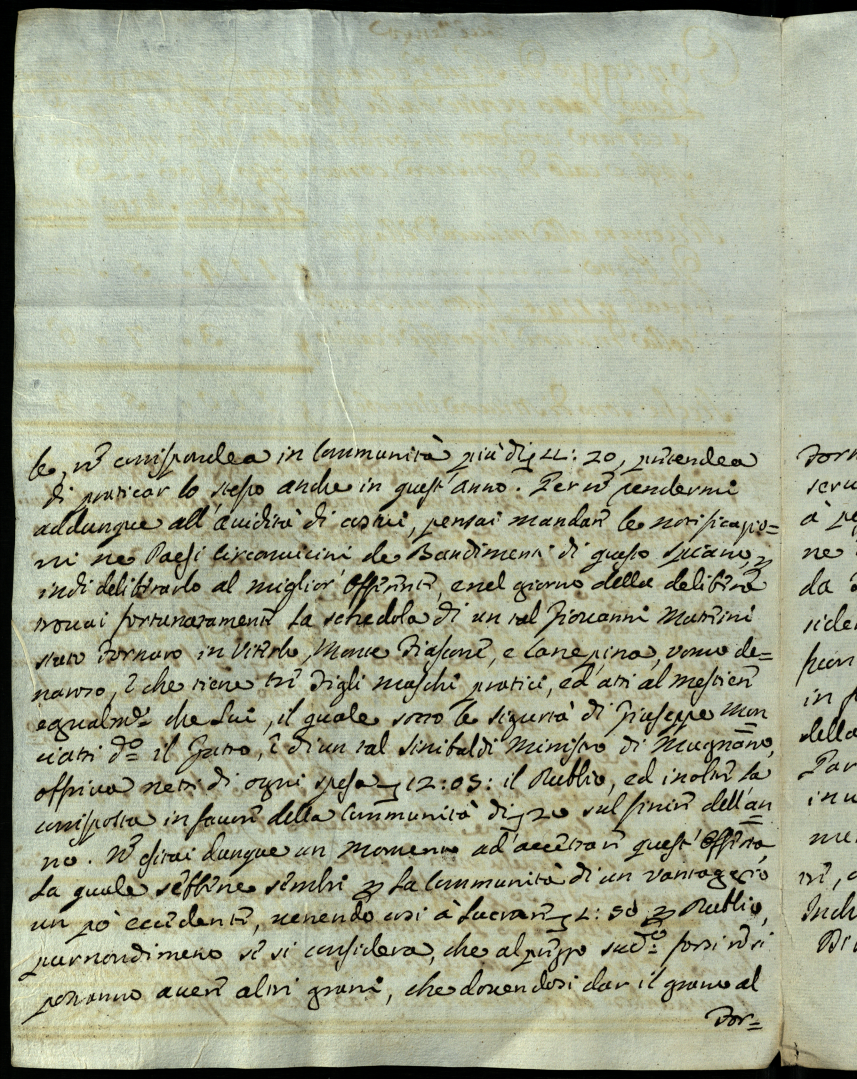 le, nō corrispondea in Communità più di 4: 20, pretendea
di praticar lo stesso anche in quest'anno. Per nō rendermi
addunque all'avidità di costui, pensai mandare le notificazio=
ni ne Paesi circonvicini de Bandimenti di questo spiano, e
indi deliberarlo al miglior' Offerente, e nel giorno della delibera
trovai fortunatamente la schedola di un tal Giovanni Martini
stato Fornaro in Viterbo, Monte Fiascone, e Canepina, uomo de=
naroso, e che tiene tre Figli maschi pratici, ed atti al mestiere
egualmte che Lui, il quale sotto le sigurtà di Giuseppe
do il Gatto, e di un tal Sinibaldi Ministro di Mugnano,
offriva netti di ogni spesa 12: 05: il Rubbio, ed inoltre la
corrisposta in favore della Communità di 20 sul finire dell'an
no. Nō esitai dunque un momento ad'accettare quest'Offerta,
la quale sebbene sembri per la Communità di un vantaggio
un pò eccedente, venendo così à lucrare : 50 per Rubbio,
purnondimeno se si considera, che al prezzo sudo forsi nō si
potranno avere altri grani, che dovendosi dar il grano al
For=
Forn
serv
à pe
ne
da
side
in p
della
Par
inv
me
Di